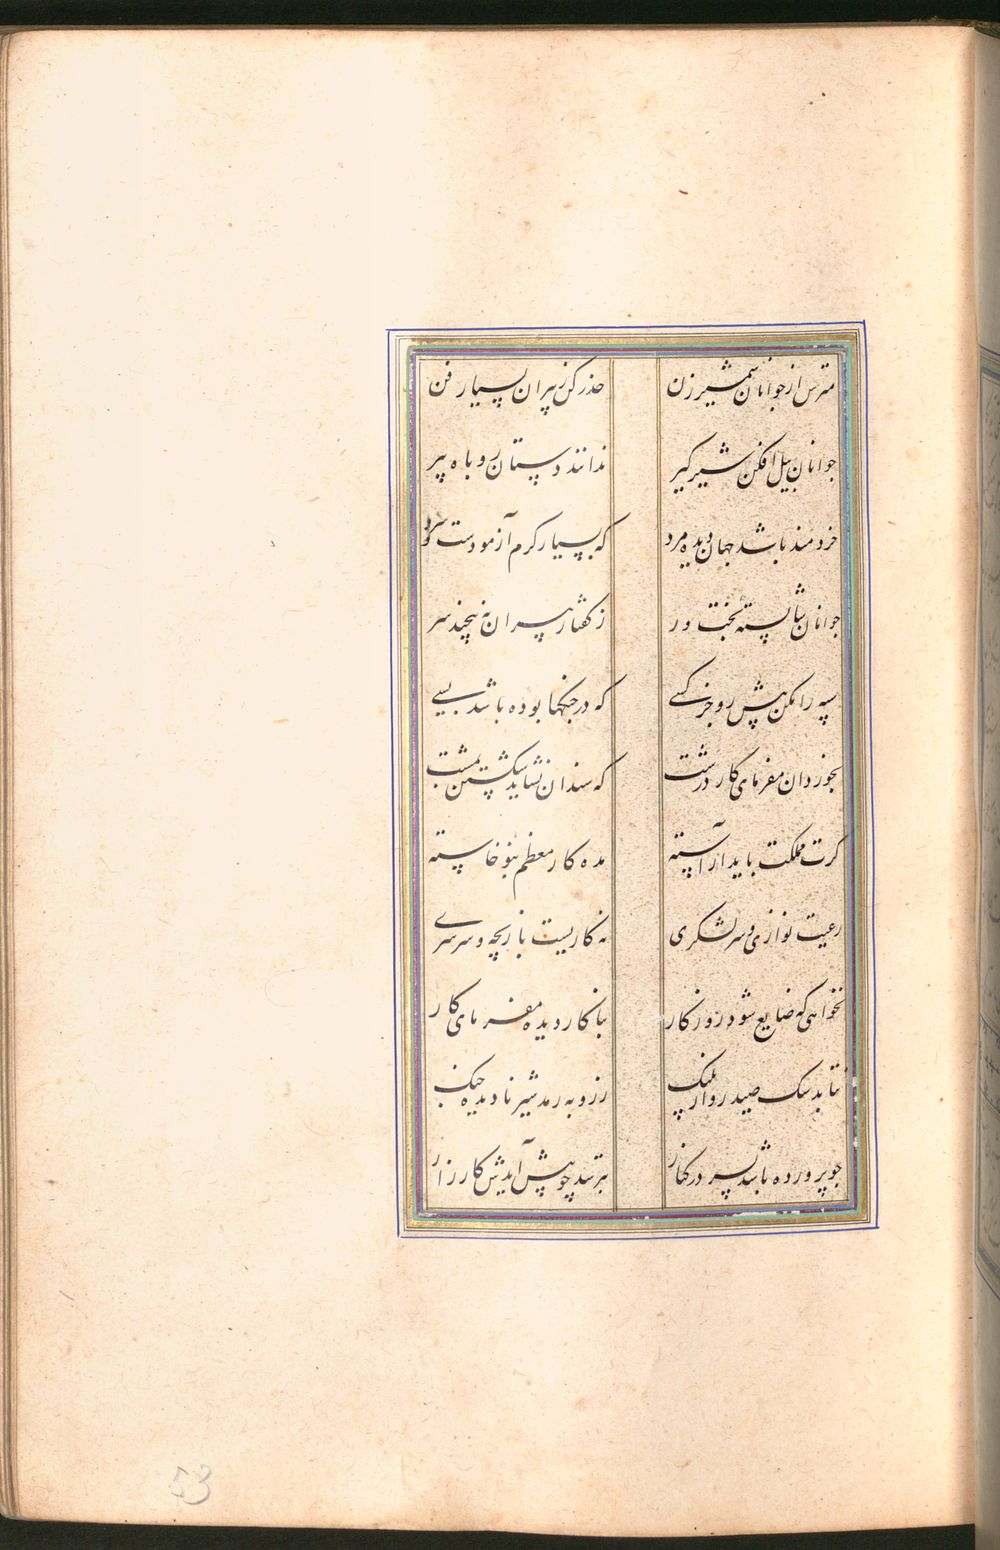 مترس از جوانان شمشیر زن حذر کن ز پیران بسیار فن
جوانان پیل افکن شیر گیر ندانند دستان روباه پیر
خردمند باشد جهان دیده مرد که بسیار گرم آزمودست و سرد
جوانان شایسته بخت ور ز گفتار پیران نه پیچند سر
سپه را مکن پیش رو جز کسے که در جنگها بوده باشد بسے
بخوردان مفرمای کار درشت که سندان نشاید شکستن بمشت
گرت مملکت باید آراسته مده کار معظم بنو خاسته
رعیت نوازی و سر لشکری نه کاریست بازیچه و سرسرے
نخواهی که ضایع شود روزگار بنا کار دیده مفرمای کار
نتابد سگ صید رو از پلنگ ز روبه رمد شیر نادیده جنگ
چو پرورده باشد پسر در کنار بترسد چو پیش آیدش کارزار
53